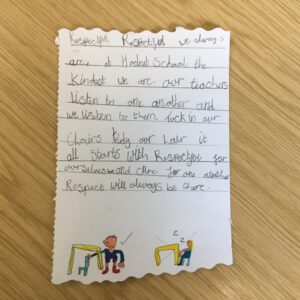 Respectful Respectful we always
are at Hodnet School the
Kindest we are. our teachers
listen to one another and
we listen to them. tuck in our
Chairs tidy our Lair it
all Starts with Respectful for
ourselves and care for one another
Respect will always be there.
z z